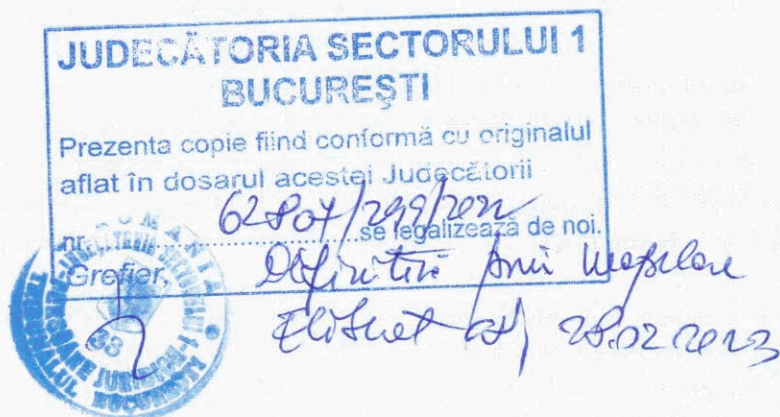 JUDECĂTORIA SECTORULUI 1
BUCUREŞTI
Prezenta copie fiind conformă cu originalul
aflat în dosarul acestei Judecătorii
nr. 62807/299/2022 se legalizează de noi.
Grefier, Definitivă prin neapelare
Eliberat azi, 28.02.2023
ROMANIA
TRIBUNALUL BUCUREŞTI